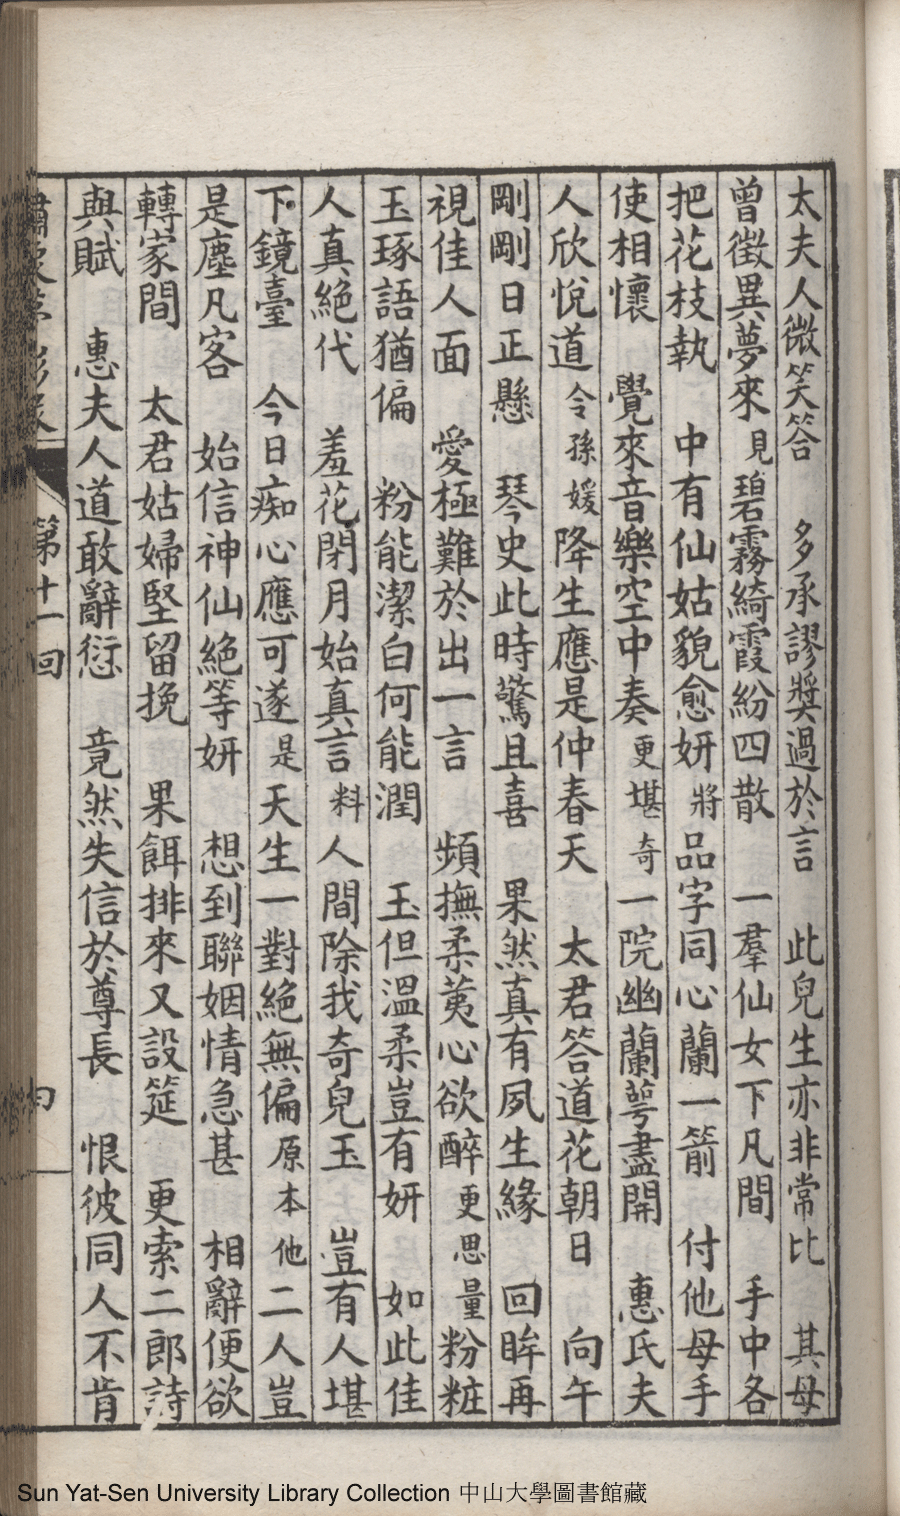 太夫人微笑答　多承謬奬過於言　此兒生亦非常比　其母
曾徵異夢來見碧霧綺霞紛四散　一羣仙女下凡間　手中各
把花枝執　中有仙姑貌愈妍將品字同心蘭一箭　付他母手
使相懷　覺來音樂空中奏更堪奇一院幽蘭萼盡開　惠氏夫
人欣悅道令孫媛降生應是仲春天　太君答道花朝日　向午
剛剛日正懸　琴史此時驚且喜　果然真有夙生緣　回眸再
視佳人面　愛極難於出一言　頻撫柔荑心欲醉更思量粉粧
玉琢語猶偏　粉能潔白何能潤　玉但溫柔豈有妍　如此佳
人真絕代　羞花閉月始真言料人間除我奇兒玉　豈有人堪
下鏡臺　今日痴心應可遂是天生一對絕無偏原本他二人豈
是塵凡客　始信神仙絕等妍　想到聯姻情急甚　相辭便欲
轉家間　太君姑婦堅留挽　果餌排來又設筵　更索二郎詩
與賦　惠夫人道敢辭愆　竟然失信於尊長　恨彼同人不肯
第十一回
Sun Yat-Sen University Library Collection 中山大學圖書館藏